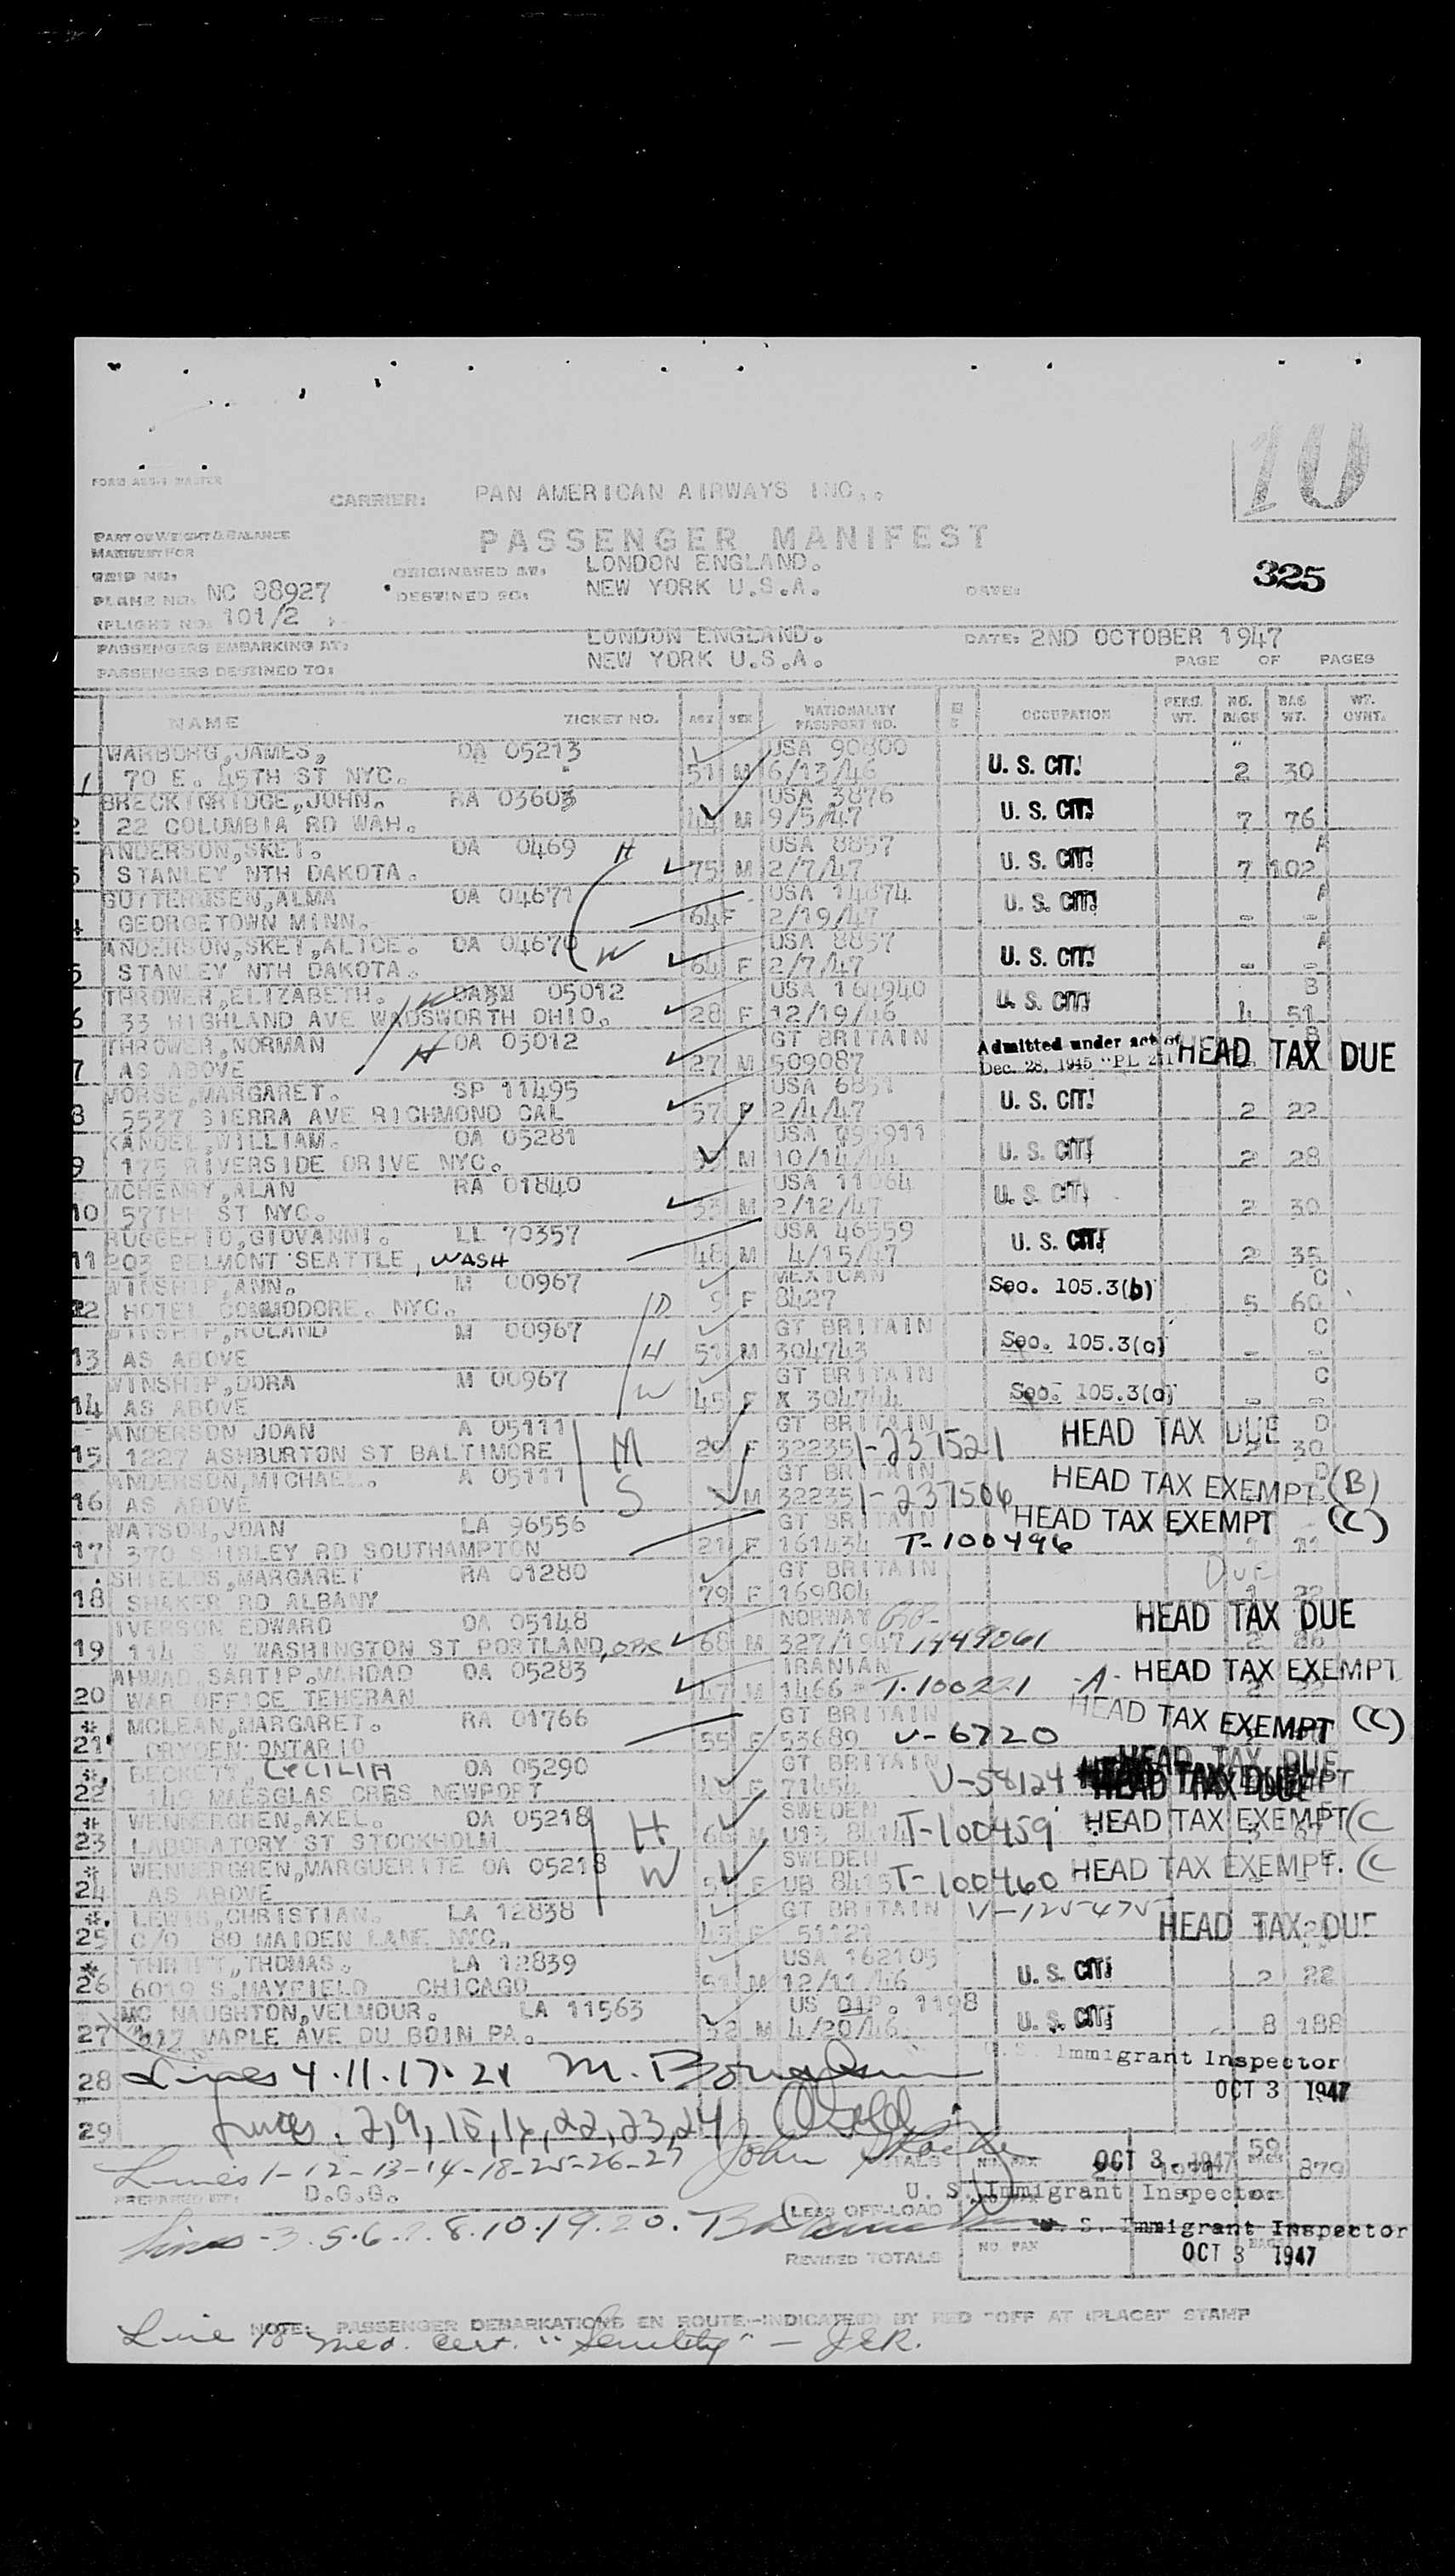 10
FORM
CARRIER: PAN AMERICAN AIRWAYS INC..
PART OF WEIGHT & BALANCE
MANIFEST FOR
PASSENGER MANIFEST
325
TRIP NO:
ORIGINATED AT: LONDON ENGLAND.
PLANE NO. NC 88927
DESTINED TO: NEW YORK U.S.A. DATE:
(FLIGHT NO. 101/2
PASSENGERS EMBARKING AT: LONDON ENGLAND. DATE: 2ND OCTOBER 1947
PASSENGERS DESTINED TO: NEW YORK U.S.A. PAGE OF PAGES
NAME TICKET NO. AGE SEX NATIONALITY PASSPORT NO. OCCUPATION PERS. WT. NO. BAGS BAG WT. WT. OVHT.
WARBURG,JAMES, OA 05213 USA 90800
1 70 E. 45TH ST NYC. 51 M 6/13/46 U. S. CIT. 2 30
BRECKINRIDGE,JOHN. RA 03603 USA 3876
2 22 COLUMBIA RD WAH. 44 M 9/5/47 U. S. CIT. 7 76
ANDERSON,SKET. OA 0469 H USA 8857 A
STANLEY NTH DAKOTA. 75 M 2/7/47 U. S. CIT. 7 102
GUTTERMSEN,ALMA OA 04671 USA 14874 A
4 GEORGETOWN MINN. 64 F 2/19/47 U. S. CIT. - -
ANDERSON,SKET,ALICE. OA 04670 W USA 8857 A
5 STANLEY NTH DAKOTA. 64 F 2/7/47 U. S. CIT. - -
THROWER,ELIZABETH. W 05012 USA 164940 B
6 33 HIGHLAND AVE WADSWORTH OHIO. 28 F 12/19/46 U. S. CIT. 4 51
THROWER,NORMAN H OA 05012 GT BRITAIN B
7 AS ABOVE 27 M 509087 Admitted under act of Dec. 28, 1945 "PL 271 HEAD TAX DUE
MORSE,MARGARET. SP 11495 USA 6851
8 5537 SIERRA AVE RICHMOND CAL 57 F 2/4/47 U. S. CIT. 2 22
KANDEL,WILLIAM. OA 05281 USA
9 175 RIVERSIDE DRIVE NYC. M 10/14/44 U. S. CIT. 2 28
MCHENRY,ALAN RA 01840 USA 11064
10 57TH ST NYC. M 2/12/47 U. S. CIT. 2 30
RUGGERIO,GIOVANNI. LL 70357 USA 46559
11 203 BELMONT SEATTLE, WASH 48 M 4/15/47 U. S. CIT. 2 35
WINSHIP,ANN. M 00967 MEXICAN C
12 HOTEL COMMODORE. NYC. D 9 F 8427 Sec. 105.3(b) 5 60
WINSHIP,ROLAND M 00967 GT BRITAIN C
13 AS ABOVE H 51 M 304743 Sec. 105.3(c) - -
WINSHIP,DORA M 00967 GT BRITAIN C
14 AS ABOVE W 45 F 304744 Sec. 105.3(c) - -
ANDERSON JOAN A 05111 GT BRITAIN D
15 1227 ASHBURTON ST BALTIMORE M F 32235 I-237521 HEAD TAX DUE 30
ANDERSON,MICHAEL. A 05111 GT BRITAIN D
16 AS ABOVE S M 32235 I-237506 HEAD TAX EXEMPT. (B)
WATSON,JOAN LA 96556 GT BRITAIN
17 370 SHIRLEY RD SOUTHAMPTON 21 F 161434 T-100496 HEAD TAX EXEMPT (C)
SHIELDS,MARGARET RA 01280 GT BRITAIN
18 SHAKER RD ALBANY 79 F 169804 DUE 1 22
IVERSON EDWARD OA 05148 NORWAY
19 114 S W WASHINGTON ST PORTLAND, ORE 68 M 327/1947 1449061 HEAD TAX DUE
AHMAD,SARTIP,MAHDAD OA 05283 IRANIAN
20 WAR OFFICE TEHERAN 47 M 1466 T-100221 -A- HEAD TAX EXEMPT
* MCLEAN,MARGARET. RA 01766 GT BRITAIN
21 DRYDEN ONTARIO 55 F 53689 V-6720 HEAD TAX EXEMPT (C)
* BECKETT, CECILIA OA 05290 GT BRITAIN HEAD TAX DUE
22 149 MAESGLAS CRES NEWPORT F 71454 V-58124 HEAD TAX DUE
* WENNERGREN,AXEL. OA 05218 SWEDEN
23 LABORATORY ST STOCKHOLM H 66 M U13 8414 T-100459 HEAD TAX EXEMPT (C
* WENNERGREN,MARGUERITE OA 05218 SWEDEN
24 AS ABOVE W F UB 8415 T-100460 HEAD TAX EXEMPT. (C
* LEWIS,CHRISTIAN. LA 12838 GT BRITAIN V-125475
25 C/O 80 MAIDEN LANE NYC. 45 F 51121 HEAD TAX DUE
* THOMAS. LA 12839 USA 162105
26 6019 S.MAYFIELD CHICAGO 51 M 12/11/46 U. S. CIT. 2 22
MC NAUGHTON,VELMOUR. LA 11563 US DIP. 1198
27 MAPLE AVE DU BOIN PA. 52 M 4/20/46 U. S. CIT. 8 188
28 Lines 4.11.17.21 U.S. Immigrant Inspector
OCT 3 1947
29 Lines. 2,9,15,16,22,23,24
Lines 1-12-13-14-18-25-26-27 John TOTALS NO. PAX OCT 3 1947 59 879
PREPARED BY: D.G.G. U. S. Immigrant Inspector
LESS OFF-LOAD
Lines -3.5.6.7.8.10.19.20. U. S. Immigrant Inspector
REVISED TOTALS NO PAX OCT 3 1947
NOTE: PASSENGER DEBARKATIONS EN ROUTE-INDICATE(D) BY RED "OFF AT (PLACE)" STAMP
Line 18 med. cert. "Senility" - J.E.R.